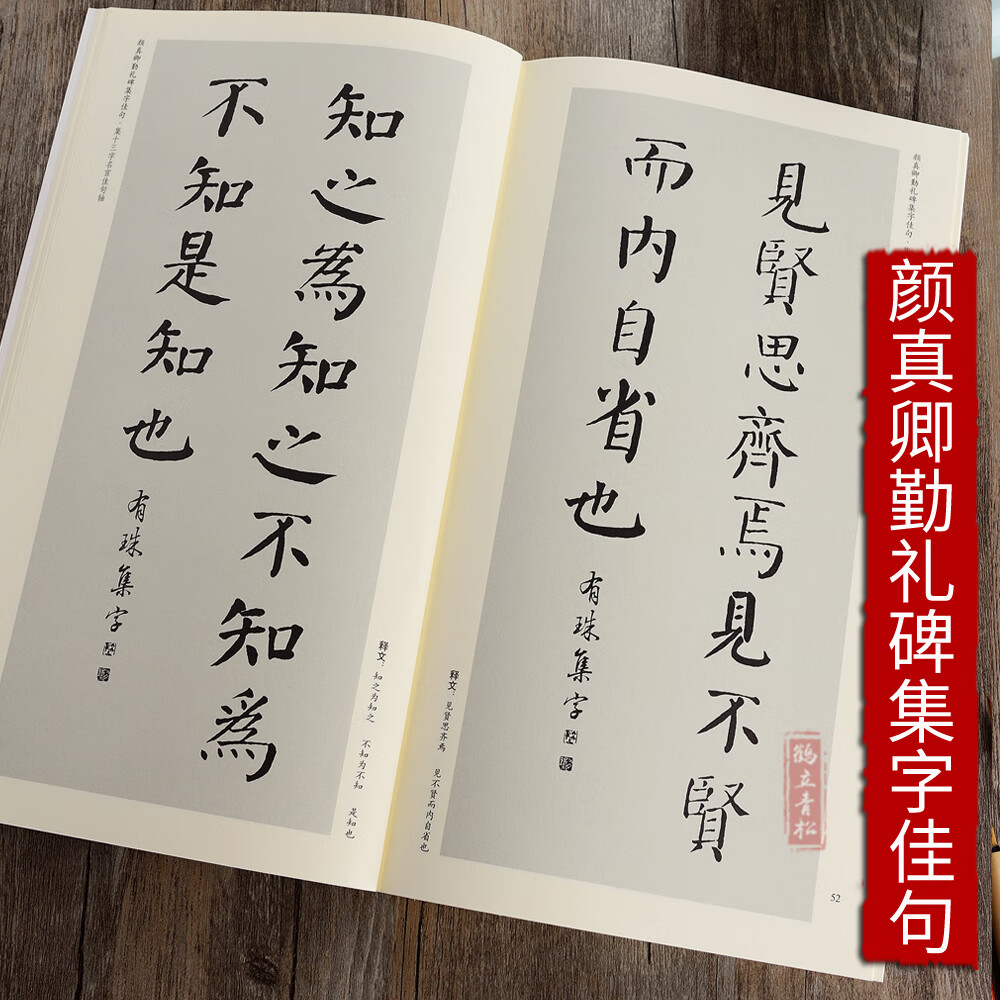 颜真卿勤礼碑集字佳句
颜真卿勤礼碑集字佳句·
見賢思齊焉見不賢
而内自省也
有珠集字
释文：见贤思齐焉 见不贤而内自省也
52
鹤立青松
释文：知之为知之 不知为不知 是知也
知之為知之不知為
不知是知也
有珠集字
颜真卿勤礼碑集字佳句·集十三字名言佳句轴